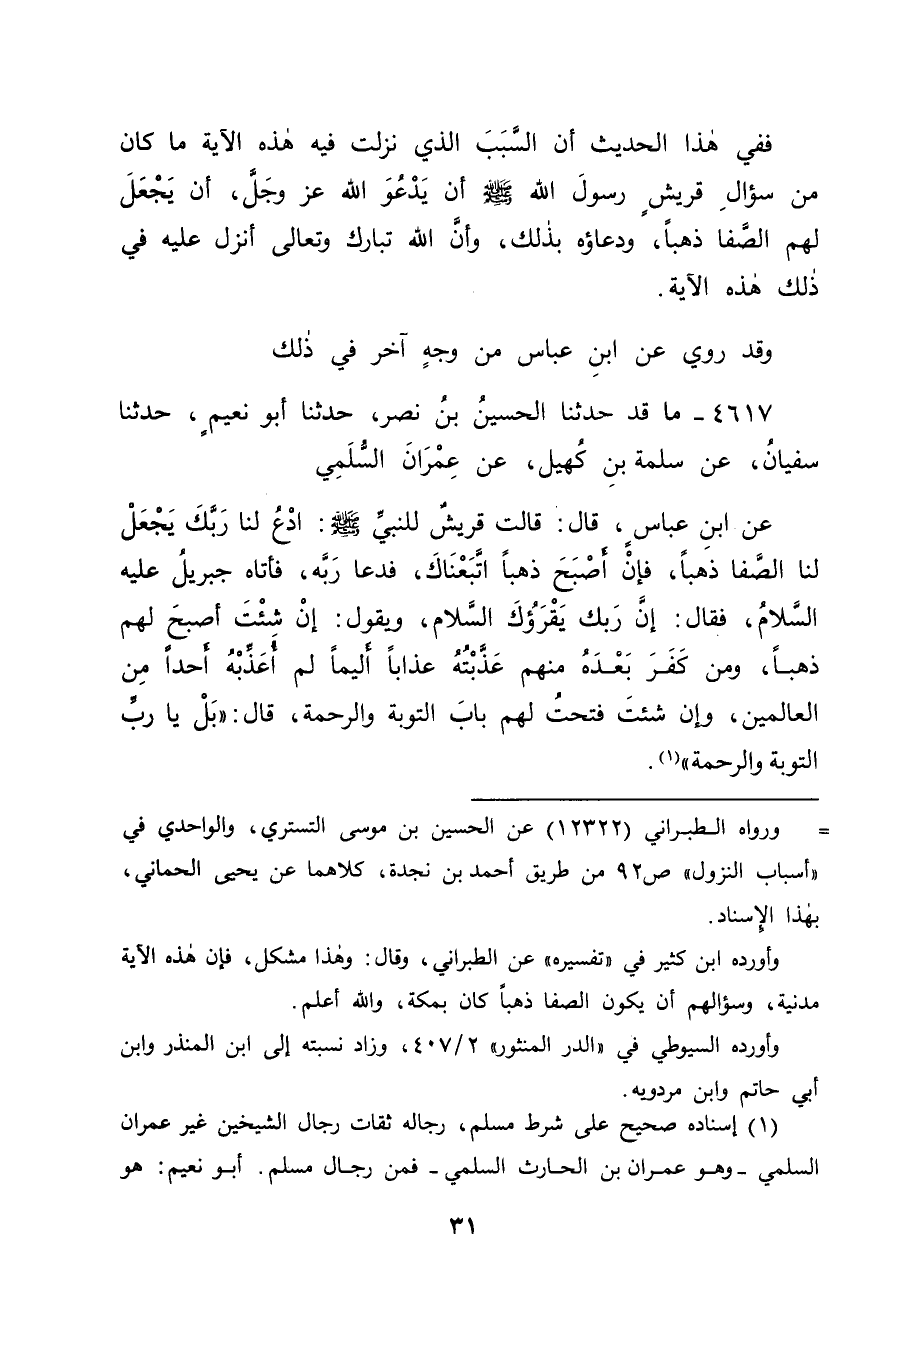 ففي هٰذا الحديث أن السَّبَبَ الذي نزلت فيه هٰذه الآية ما كان
من سؤالِ قريشٍ رسولَ الله ﷺ أن يَدْعُوَ الله عز وجَلَّ، أن يَجْعَلَ
لهم الصَّفا ذهباً، ودعاؤه بذٰلك، وأنَّ الله تبارك وتعالى أنزل عليه في
ذٰلك هٰذه الآية.
وقد روي عن ابنِ عباس من وجهٍ آخر في ذٰلك
٤٦١٧ ـ ما قد حدثنا الحسينُ بنُ نصر، حدثنا أبو نعيمٍ، حدثنا
سفيانُ، عن سلمة بنِ كُهيل، عن عِمْرَانَ السُّلَمِي
عن ابنِ عباسٍ، قال: قالت قريشٌ للنبيِّ ﷺ: ادْعُ لنا رَبَّكَ يَجْعَلْ
لنا الصَّفا ذهباً، فإنْ أَصْبَحَ ذهباً اتَّبَعْنَاكَ، فدعا رَبَّه، فأتاه جبريلُ عليه
السَّلامُ، فقال: إنَّ رَبك يَقْرَؤُكَ السَّلام، ويقول: إنْ شِئْتَ أصبحَ لهم
ذهبـاً، ومن كَفَـرَ بَعْـدَهُ منهم عَذَّبْتُهُ عذاباً أَليماً لم أُعَذِّبْهُ أَحداً مِن
العالمين، وإن شئتَ فتحتُ لهم بابَ التوبة والرحمة، قال: «بَلْ يا ربِّ
التوبة والرحمة»(١).
= ورواه الـطبـراني (١٢٣٢٢) عن الحسين بن موسى التستري، والواحدي في
«أسباب النزول» ص٩٢ من طريق أحمد بن نجدة، كلاهما عن يحيى الحماني،
بهٰذا الإِسناد.
وأورده ابن كثير في «تفسيره» عن الطبراني، وقال: وهٰذا مشكل، فإن هٰذه الآية
مدنية، وسؤالهم أن يكون الصفا ذهباً كان بمكة، والله أعلم.
وأورده السيوطي في «الدر المنثور» ٤٠٧/٢، وزاد نسبته إلى ابن المنذر وابن
أبي حاتم وابن مردويه.
(١) إسناده صحيح على شرط مسلم، رجاله ثقات رجال الشيخين غير عمران
السلمي ـ وهـو عمـران بن الحـارث السلمي ـ فمن رجـال مسلم. أبـو نعيم: هو
٣١